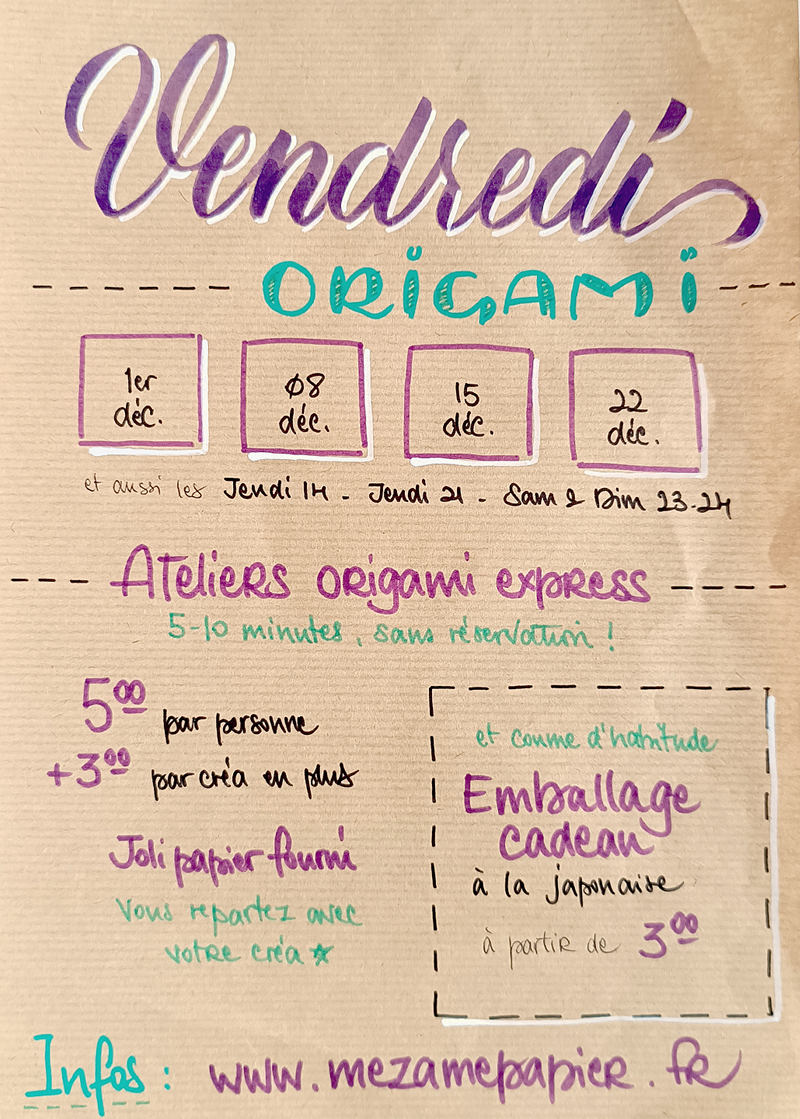 Vendredi
ORIGAMI
1er déc.
08 déc.
15 déc.
22 déc.
et aussi les Jeudi 14 - Jeudi 21 - Sam & Dim 23-24
Ateliers origami express
5-10 minutes, sans réservation !
5,00 par personne
+3,00 par créa en plus
Joli papier fourni
Vous repartez avec
votre créa ★
et comme d'habitude
Emballage
cadeau
à la japonaise
à partir de 3,00
Infos : www.mezamepapier.fr